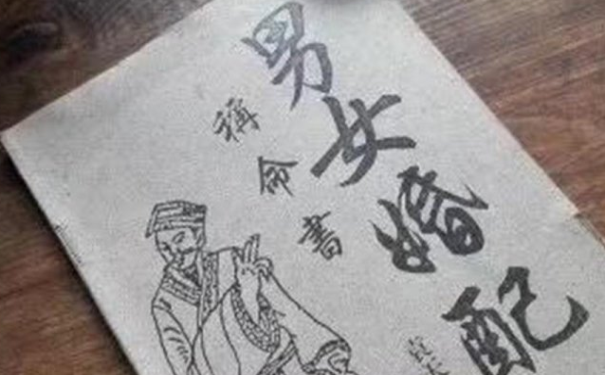 男女婚配
稱命書